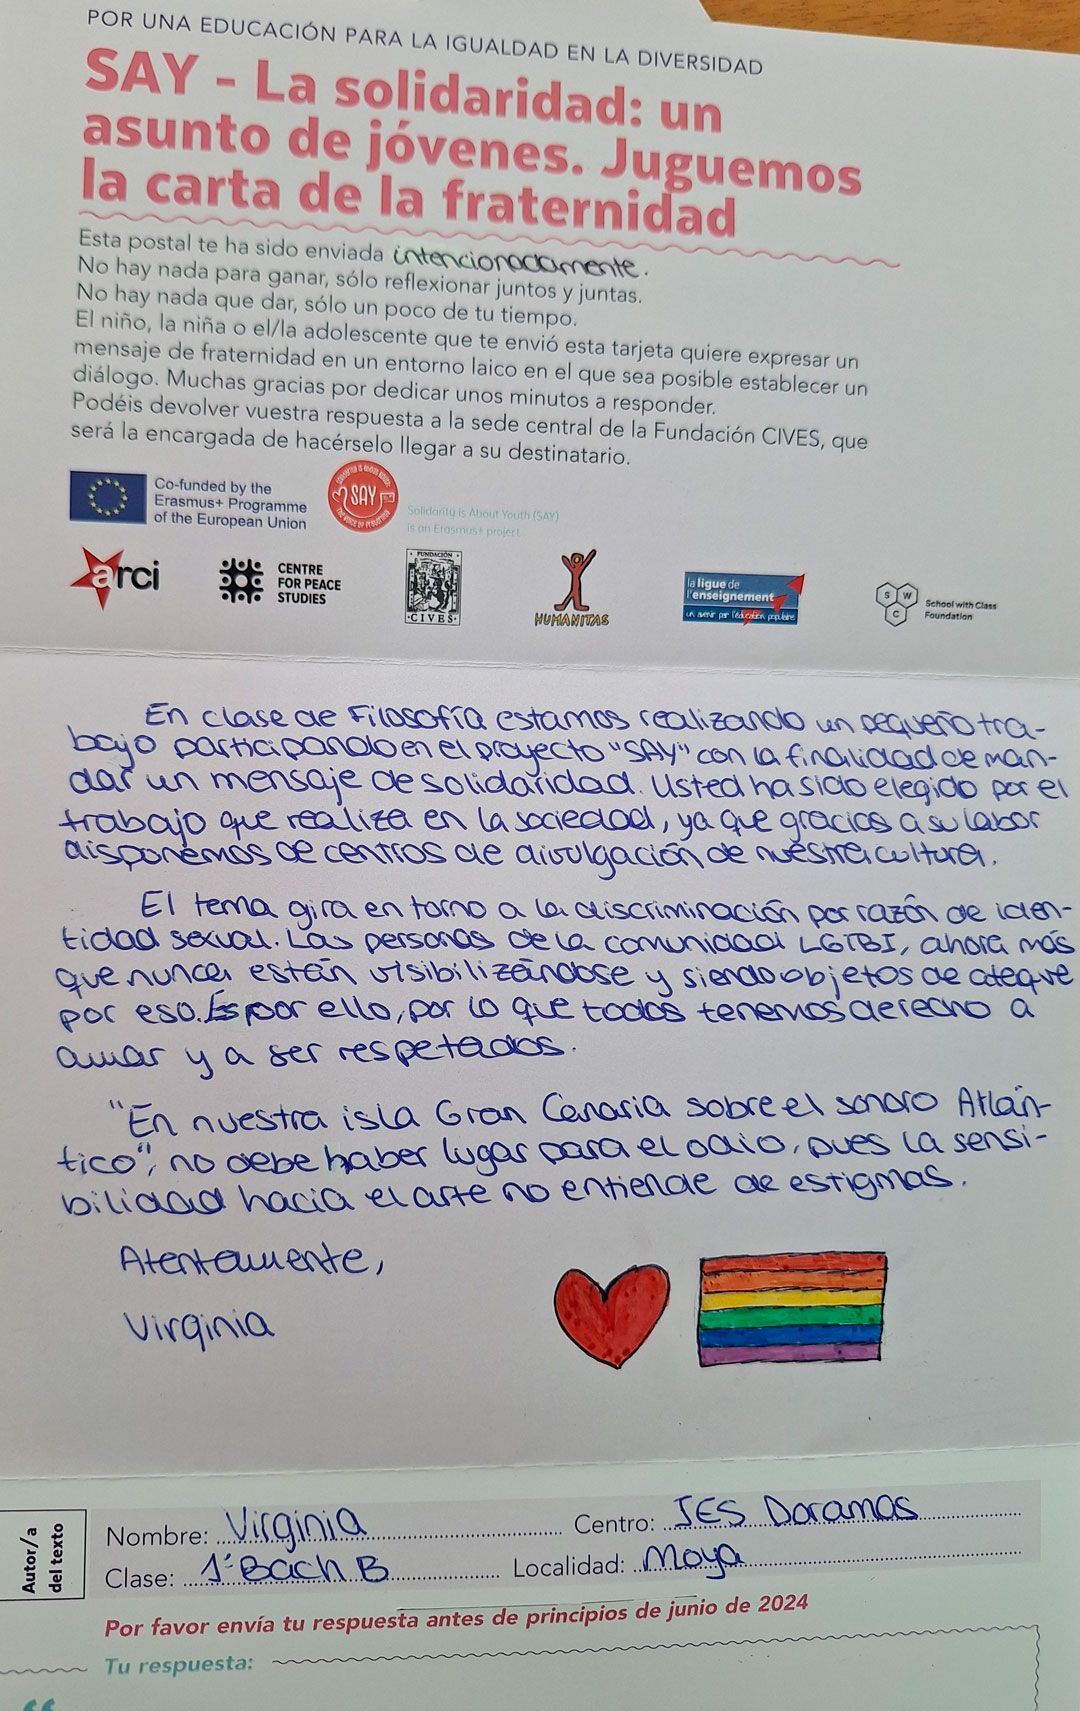 POR UNA EDUCACIÓN PARA LA IGUALDAD EN LA DIVERSIDAD
SAY - La solidaridad: un
asunto de jóvenes. Juguemos
la carta de la fraternidad
Esta postal te ha sido enviada intencionadamente.
No hay nada para ganar, sólo reflexionar juntos y juntas.
No hay nada que dar, sólo un poco de tu tiempo.
El niño, la niña o el/la adolescente que te envió esta tarjeta quiere expresar un
mensaje de fraternidad en un entorno laico en el que sea posible establecer un
diálogo. Muchas gracias por dedicar unos minutos a responder.
Podéis devolver vuestra respuesta a la sede central de la Fundación CIVES, que
será la encargada de hacérselo llegar a su destinatario.
Co-funded by the
Erasmus+ Programme
of the European Union
SAY
Solidarity Is About Youth (SAY)
is an Erasmus+ project
arci
CENTRE
FOR PEACE
STUDIES
FUNDACIÓN
·CIVES·
HUMANITAS
la ligue de
l'enseignement
un avenir par l'éducation populaire
S W
C
School with Class
Foundation
En clase de Filosofía estamos realizando un pequeño tra-
bajo participando en el proyecto "SAY" con la finalidad de man-
dar un mensaje de solidaridad. Usted ha sido elegido por el
trabajo que realiza en la sociedad, ya que gracias a su labor
disponemos de centros de divulgación de nuestra cultura.
El tema gira en torno a la discriminación por razón de iden-
tidad sexual. Las personas de la comunidad LGTBI, ahora más
que nunca están visibilizándose y siendo objetos de ataque
por eso. Es por ello, por lo que todos tenemos derecho a
amar y a ser respetados.
"En nuestra isla Gran Canaria sobre el sonoro Atlán-
tico", no debe haber lugar para el odio, pues la sensi-
bilidad hacia el arte no entiende de estigmas.
Atentamente,
Virginia
Autor/a
del texto
Nombre: Virginia Centro: IES Doramas
Clase: 1º Bach B Localidad: Moya
Por favor envía tu respuesta antes de principios de junio de 2024
Tu respuesta: